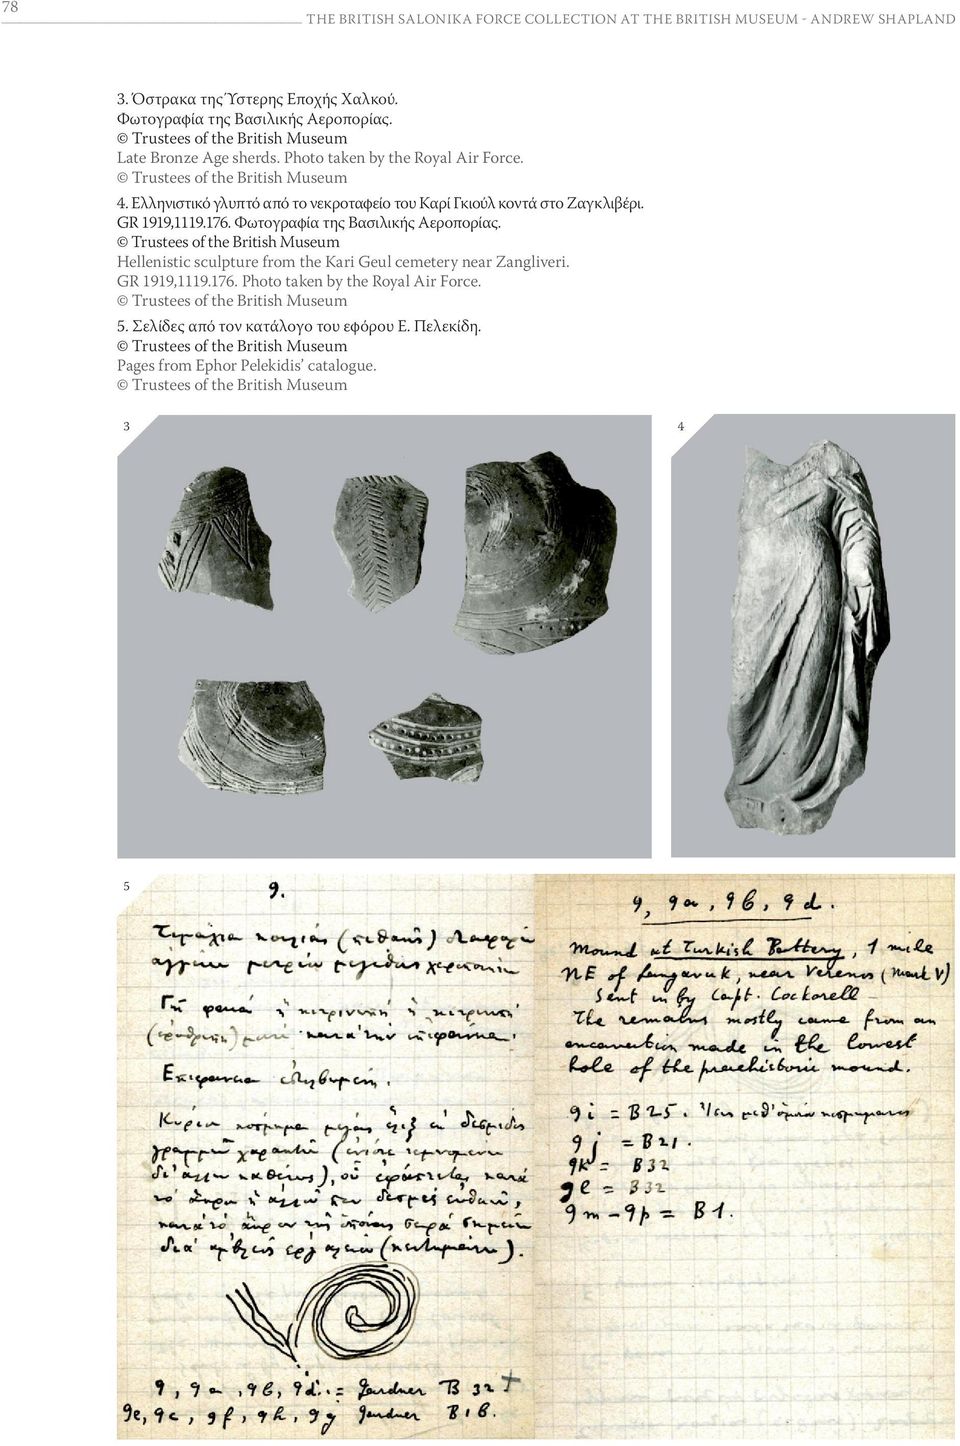 78
THE BRITISH SALONIKA FORCE COLLECTION AT THE BRITISH MUSEUM - ANDREW SHAPLAND
3. Όστρακα της Ύστερης Εποχής Χαλκού.
Φωτογραφία της Βασιλικής Αεροπορίας.
© Trustees of the British Museum
Late Bronze Age sherds. Photo taken by the Royal Air Force.
© Trustees of the British Museum
4. Ελληνιστικό γλυπτό από το νεκροταφείο του Καρί Γκιούλ κοντά στο Ζαγκλιβέρι.
GR 1919,1119.176. Φωτογραφία της Βασιλικής Αεροπορίας.
© Trustees of the British Museum
Hellenistic sculpture from the Kari Geul cemetery near Zangliveri.
GR 1919,1119.176. Photo taken by the Royal Air Force.
© Trustees of the British Museum
5. Σελίδες από τον κατάλογο του εφόρου Ε. Πελεκίδη.
© Trustees of the British Museum
Pages from Ephor Pelekidis’ catalogue.
© Trustees of the British Museum
3
4
5
9.
Τεμάχια κοιλιάς (πιθανῶς)
μετρίου μεγέθους
Γῆ φαιά ἢ κιτρινωπὴ ἢ
κατὰ τὴν ἐπιφάνεια.
Ἐπιφάνεια
Κύριον κόσμημα μεγάλη ἕλιξ ἐκ δέσμιδος
γραμμῶν χαρακτῶν (ἐνίοτε τεμνομένων
δι' ἄλλων καθέτως), οὗ ἐφάπτεται κατὰ
τὸ ἄκρον ἢ ἄλλου
κατὰ τὸ ἄκρον τῆς ὁποίας σειρὰ
διὰ ἀμβλέως ἐργαλείου
9, 9a, 9b, 9d. = Gardner B 32 +
9e, 9c, 9f, 9h, 9g Gardner B 16.
9, 9a, 9b, 9d.
Mound at Turkish Battery, 1 mile
NE of Langavuk, near Verenos (Mark V)
Sent in by Capt. Cockerell
The remains mostly came from an
excavation made in the lowest
hole of the praehistoric mound.
9i = B25.
9j = B21.
9k = B32
9l = B32
9m – 9p = B1.